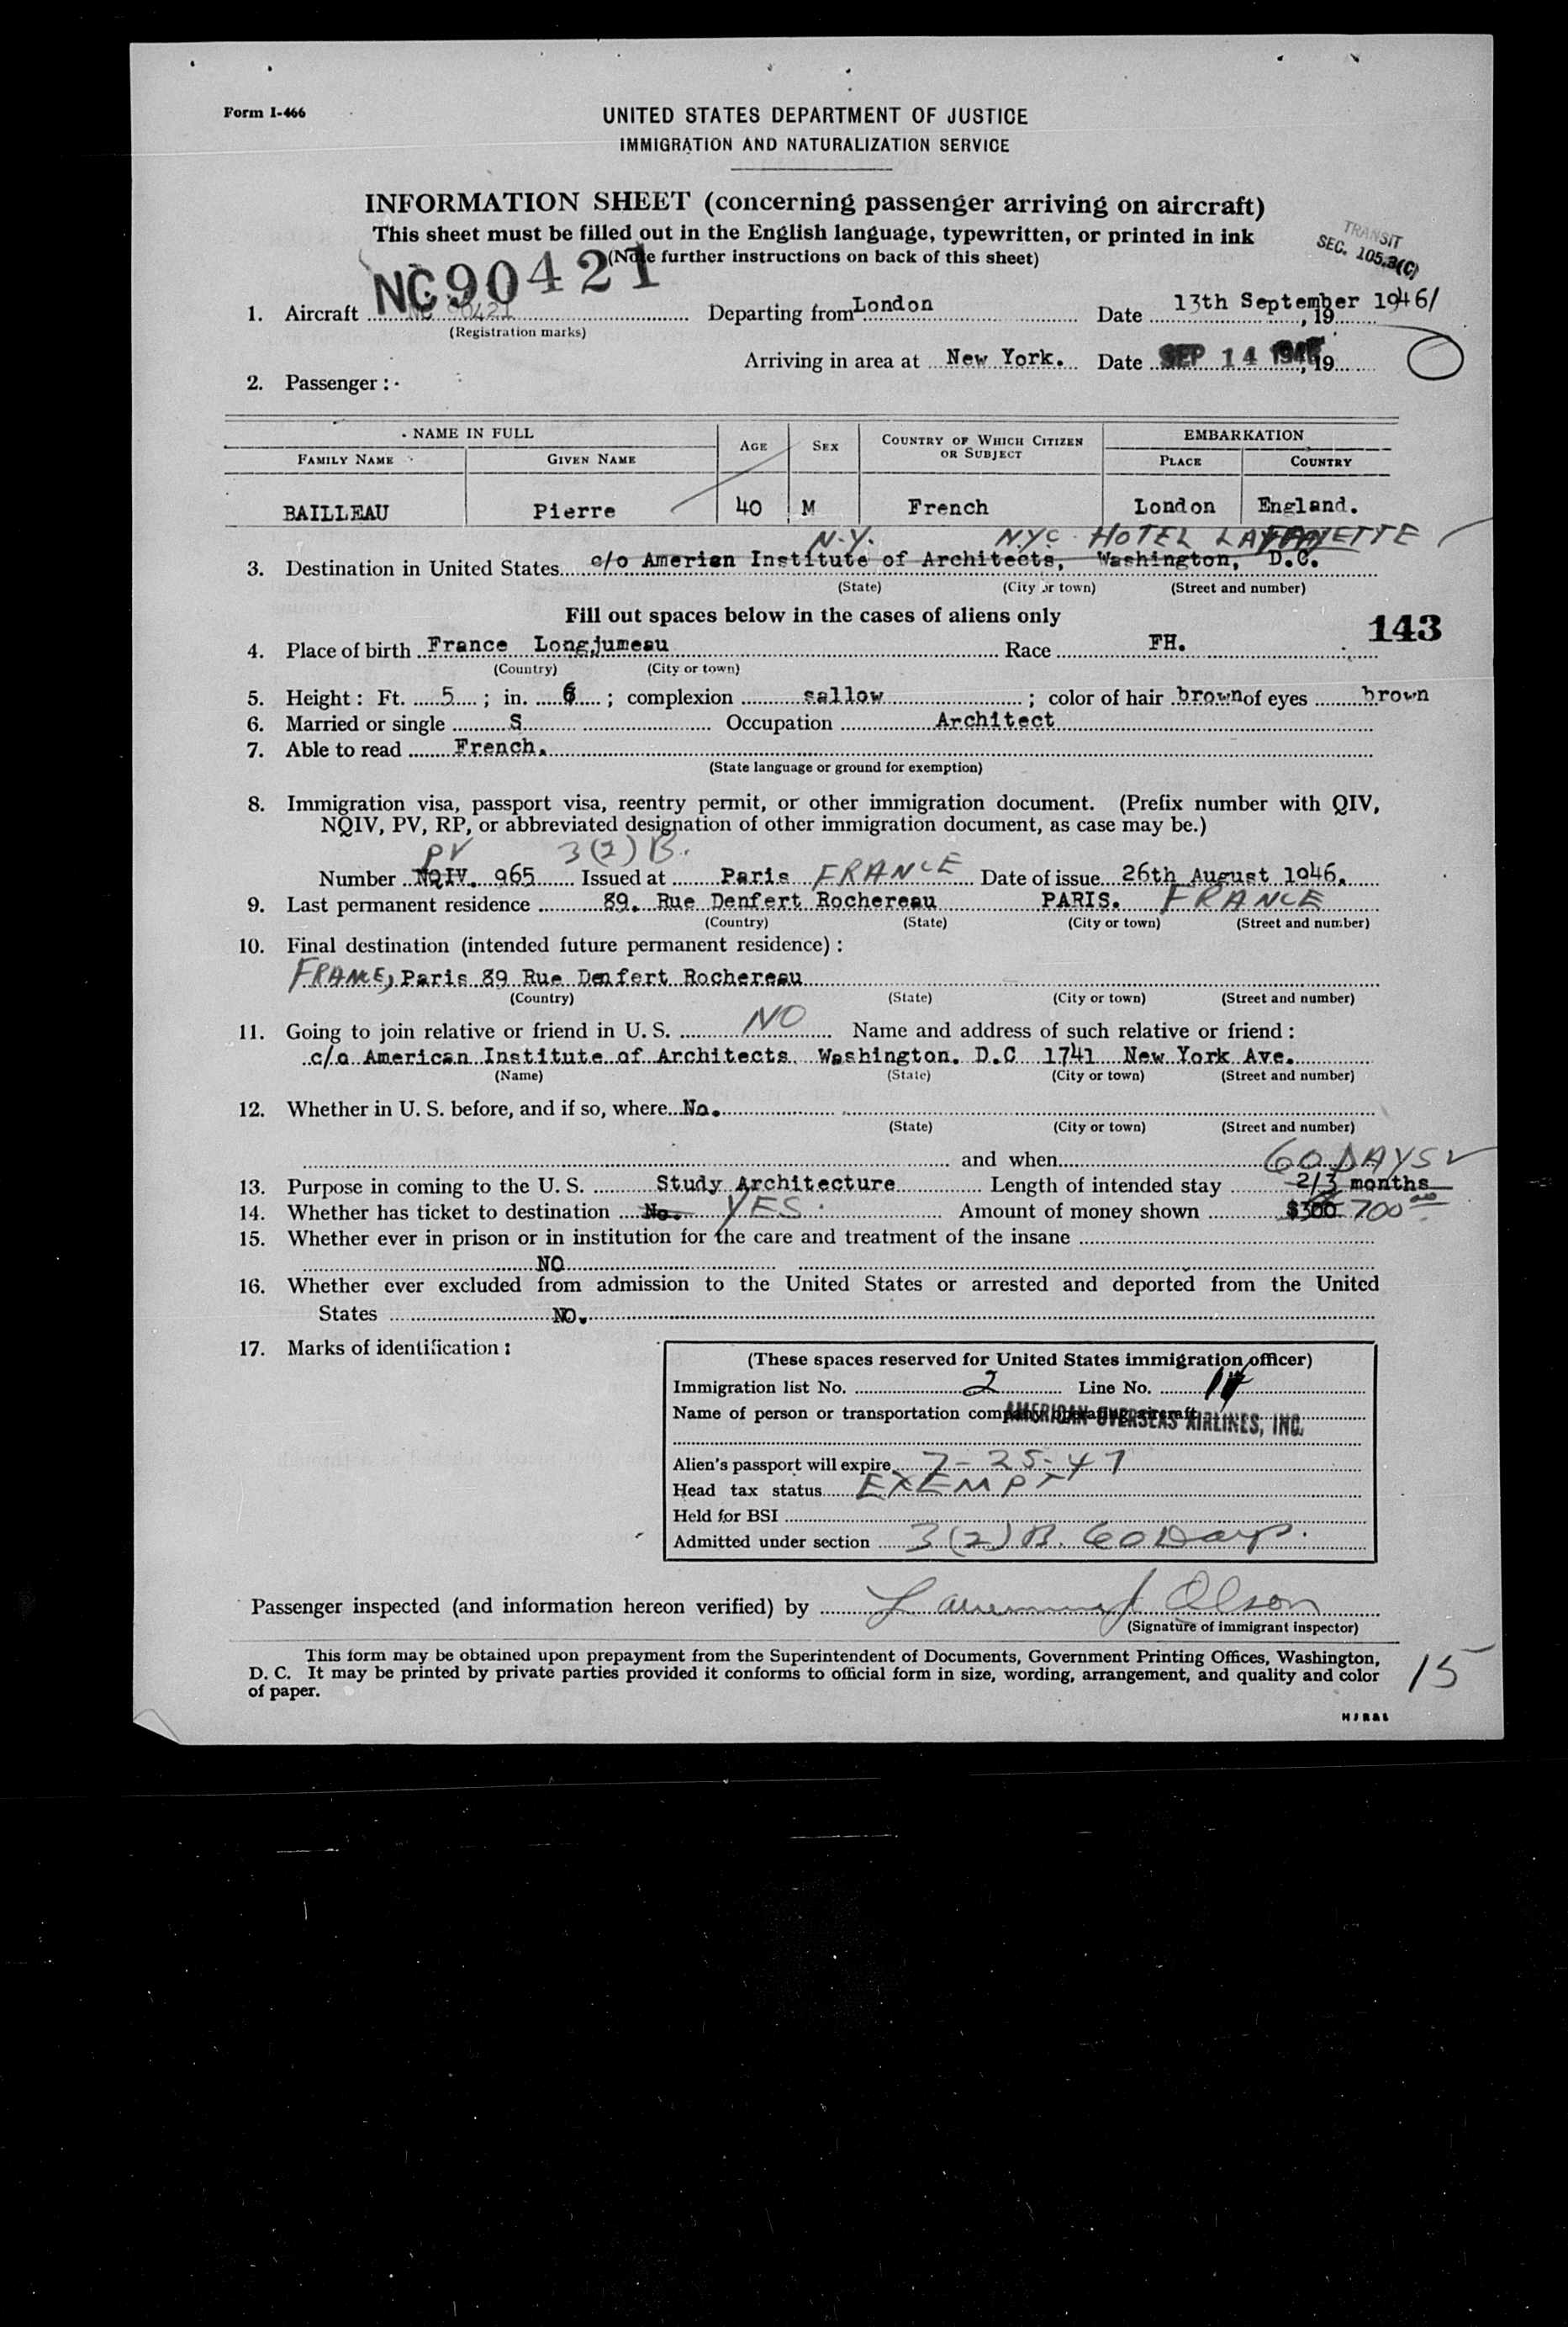 Form I-466
UNITED STATES DEPARTMENT OF JUSTICE
IMMIGRATION AND NATURALIZATION SERVICE
INFORMATION SHEET (concerning passenger arriving on aircraft)
This sheet must be filled out in the English language, typewritten, or printed in ink
(Note further instructions on back of this sheet)
TRANSIT
SEC. 105.3(C)
NC90421
1. Aircraft NC 90421 Departing from London Date 13th September 1946/ , 19
(Registration marks)
Arriving in area at New York. Date SEP 14 1946, 19
2. Passenger:
NAME IN FULL AGE SEX COUNTRY OF WHICH CITIZEN OR SUBJECT EMBARKATION
FAMILY NAME GIVEN NAME PLACE COUNTRY
BAILLEAU Pierre 40 M French London England.
N.Y. N.Y.C HOTEL LAFAYETTE
3. Destination in United States c/o Amerian Institute of Architects, Washington, D.C.
(State) (City or town) (Street and number)
Fill out spaces below in the cases of aliens only
143
4. Place of birth France Longjumeau Race FH.
(Country) (City or town)
5. Height: Ft. 5; in. 6; complexion sallow; color of hair brown of eyes brown
6. Married or single S Occupation Architect
7. Able to read French.
(State language or ground for exemption)
8. Immigration visa, passport visa, reentry permit, or other immigration document. (Prefix number with QIV,
NQIV, PV, RP, or abbreviated designation of other immigration document, as case may be.)
PV 3(2)B.
Number NQIV. 965 Issued at Paris FRANCE Date of issue 26th August 1946.
9. Last permanent residence 89. Rue Denfert Rochereau PARIS. FRANCE
(Country) (State) (City or town) (Street and number)
10. Final destination (intended future permanent residence):
FRANCE, Paris 89 Rue Denfert Rochereau
(Country) (State) (City or town) (Street and number)
11. Going to join relative or friend in U. S. NO Name and address of such relative or friend:
c/o American Institute of Architects Washington. D.C 1741 New York Ave.
(Name) (State) (City or town) (Street and number)
12. Whether in U. S. before, and if so, where No.
(State) (City or town) (Street and number)
and when 60 DAYS
13. Purpose in coming to the U. S. Study Architecture Length of intended stay 2/3 months
14. Whether has ticket to destination No. YES. Amount of money shown $300 700 00
15. Whether ever in prison or in institution for the care and treatment of the insane
NO
16. Whether ever excluded from admission to the United States or arrested and deported from the United
States NO.
17. Marks of identification:
(These spaces reserved for United States immigration officer)
Immigration list No. 2 Line No.
Name of person or transportation company operating aircraft
AMERICAN OVERSEAS AIRLINES, INC.
Alien's passport will expire 7-25-47
Head tax status EXEMPT
Held for BSI
Admitted under section 3(2)B. 60 Days.
Passenger inspected (and information hereon verified) by Olson
(Signature of immigrant inspector)
This form may be obtained upon prepayment from the Superintendent of Documents, Government Printing Offices, Washington,
D. C. It may be printed by private parties provided it conforms to official form in size, wording, arrangement, and quality and color
of paper.
15